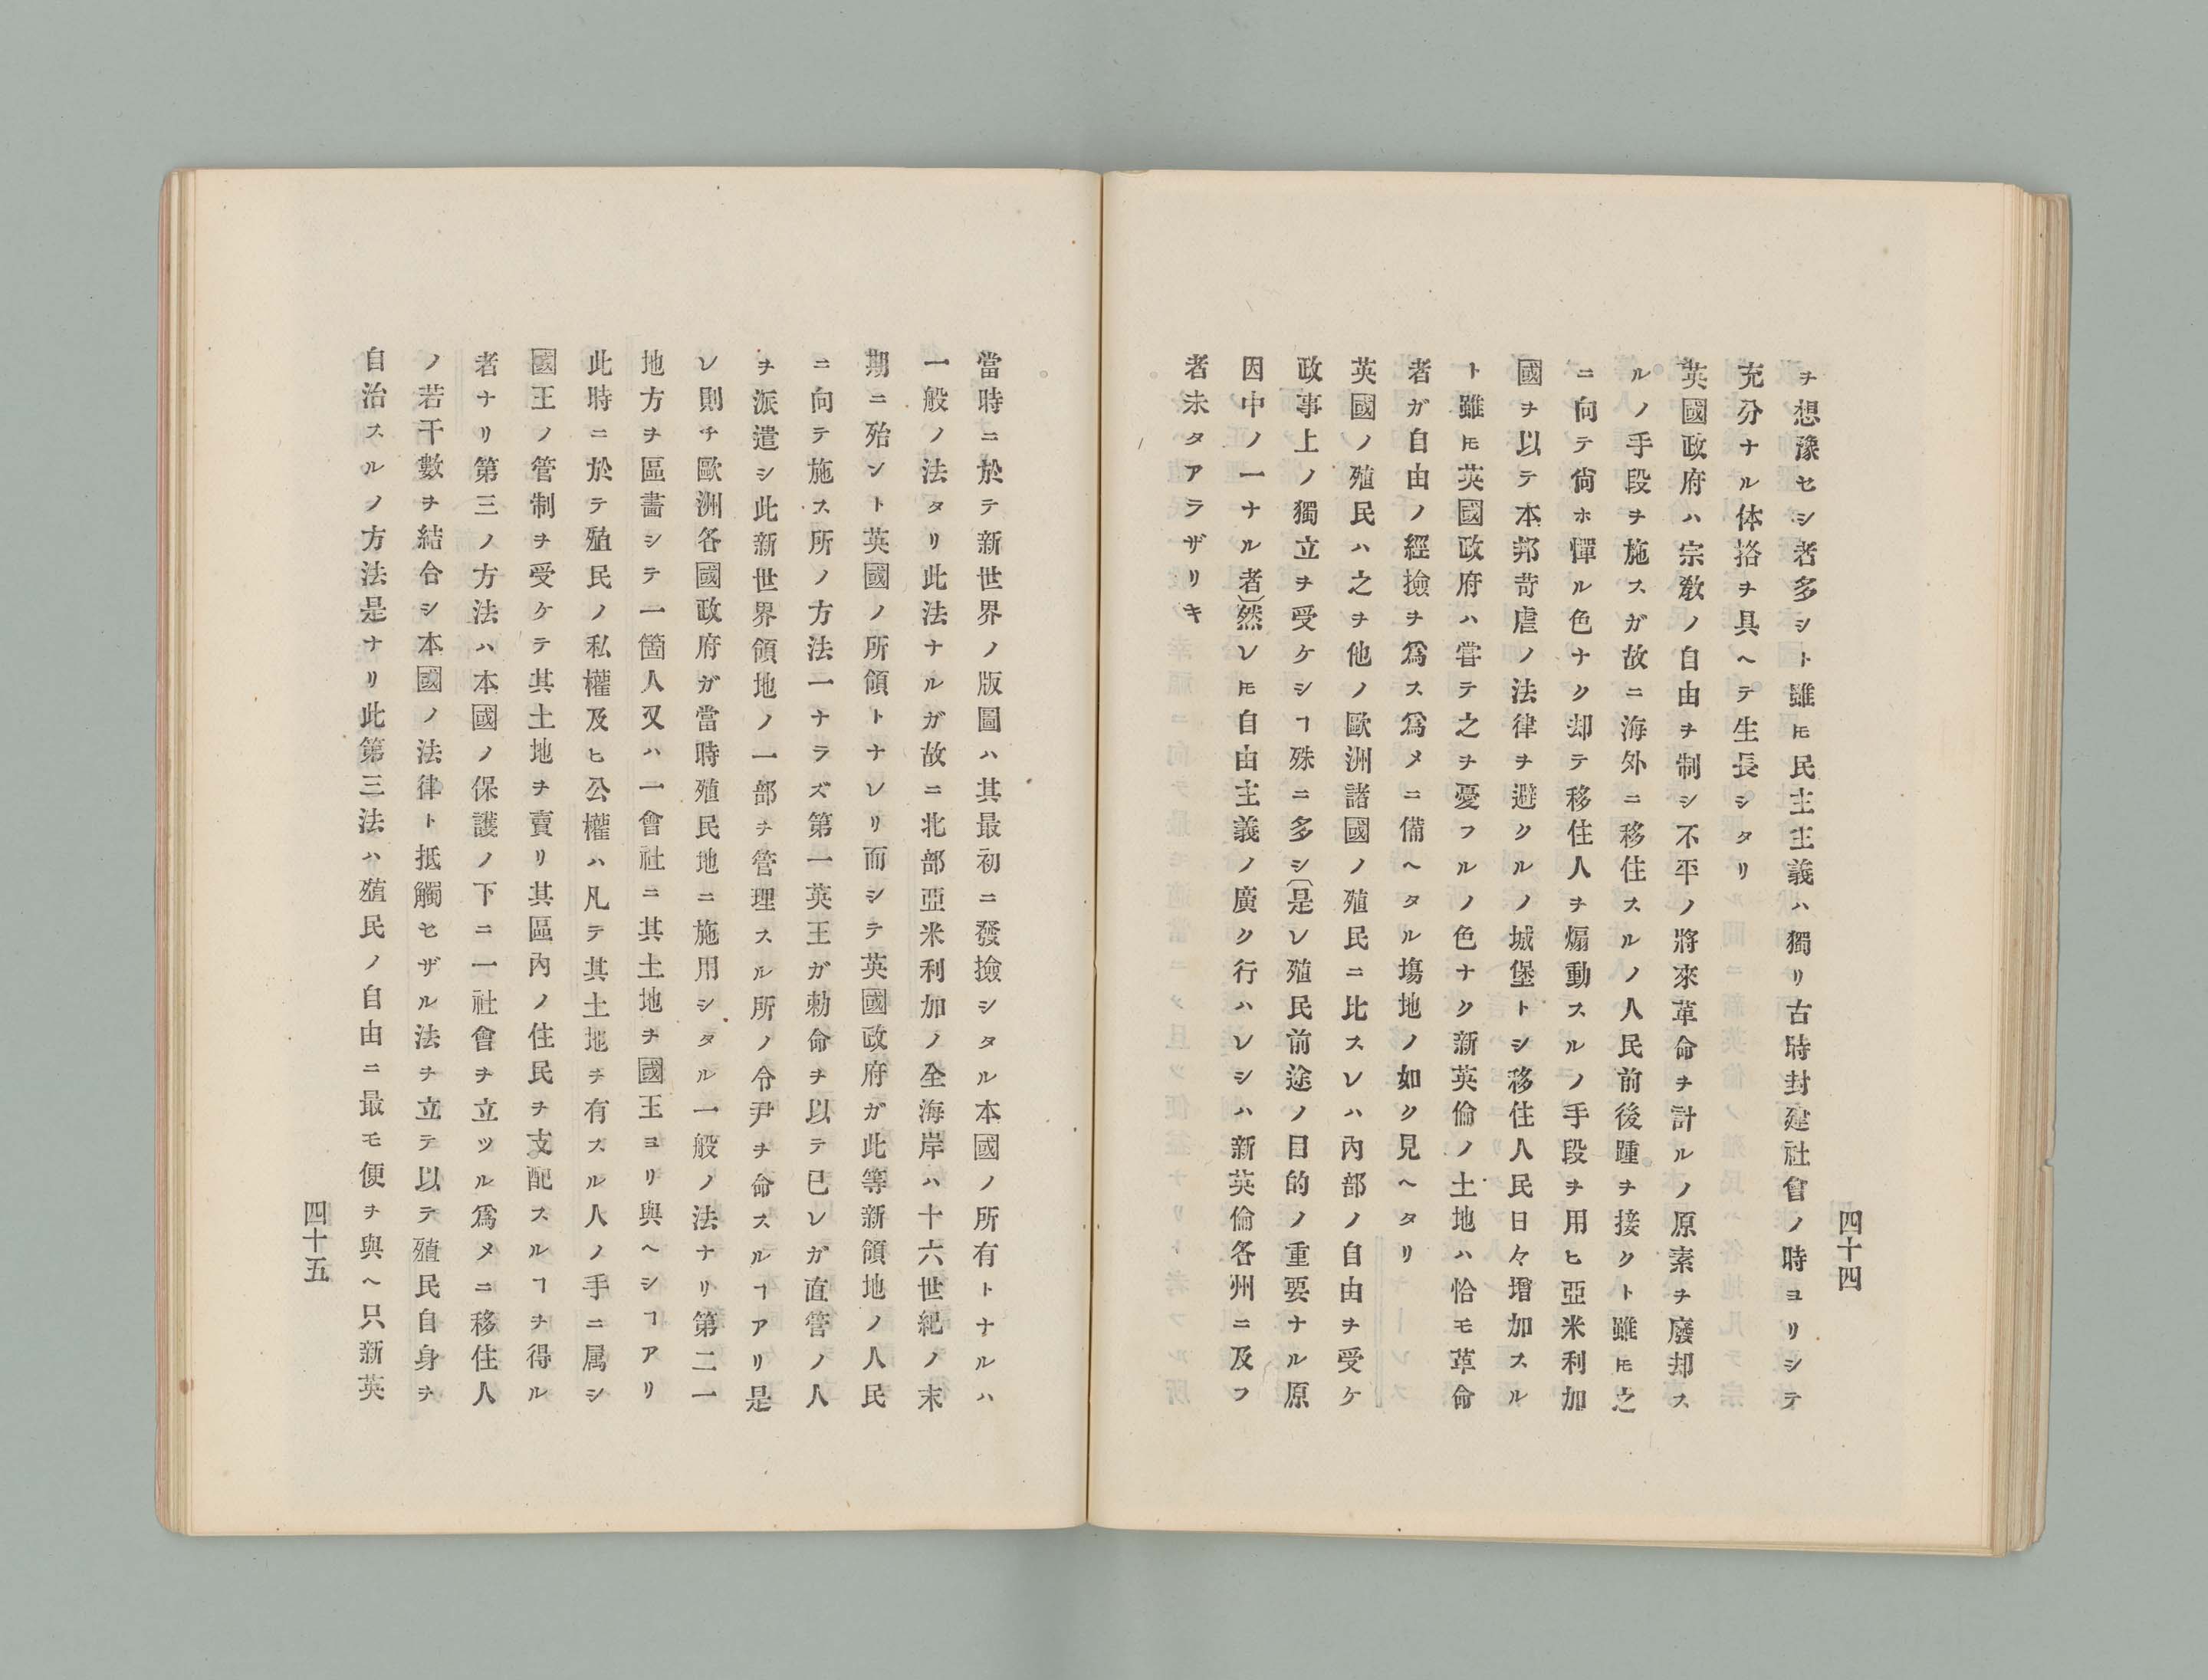 四十四
ヲ想豫セシ者多シト雖𪜈民主主義ハ獨リ古時封建社會ノ時ヨリシテ
充分ナル体挌ヲ具ヘテ生長シタリ
英國政府ハ宗敎ノ自由ヲ制シ不平ノ將來革命ヲ計ルノ原素ヲ廢却ス
ルノ手段ヲ施スガ故ニ海外ニ移住スルノ人民前後踵ヲ接クト雖𪜈之
ニ向テ尙ホ憚ル色ナク却テ移住人ヲ煽動スルノ手段ヲ用ヒ亞米利加
國ヲ以テ本邦苛虐ノ法律ヲ避クルノ城堡トシ移住人民日々增加スル
ト雖𪜈英國政府ハ嘗テ之ヲ憂フルノ色ナク新英倫ノ土地ハ恰モ革命
者ガ自由ノ經撿ヲ爲ス爲メニ備ヘタル塲地ノ如ク見ヘタリ
英國ノ殖民ハ之ヲ他ノ歐洲諸國ノ殖民ニ比スレハ內部ノ自由ヲ受ケ
政事上ノ獨立ヲ受ケシヿ殊ニ多シ〔是レ殖民前途ノ目的ノ重要ナル原
因中ノ一ナル者〕然レ𪜈自由主義ノ廣ク行ハレシハ新英倫各州ニ及フ
者未タアラザリキ
當時ニ於テ新世界ノ版圖ハ其最初ニ發撿シタル本國ノ所有トナルハ
一般ノ法タリ此法ナルガ故ニ北部亞米利加ノ全海岸ハ十六世紀ノ末
期ニ殆ント英國ノ所領トナレリ而シテ英國政府ガ此等新領地ノ人民
ニ向テ施ス所ノ方法一ナラズ第一英王ガ勅命ヲ以テ已レガ直管ノ人
ヲ派遣シ此新世界領地ノ一部ヲ管理スル所ノ令尹ヲ命スルヿアリ是
レ則チ歐洲各國政府ガ當時殖民地ニ施用シタル一般ノ法ナリ第二一
地方ヲ區畵シテ一箇人又ハ一會社ニ其土地ヲ國王ヨリ與ヘシヿアリ
此時ニ於テ殖民ノ私權及ヒ公權ハ凡テ其土地ヲ有スル人ノ手ニ属シ
國王ノ管制ヲ受ケテ其土地ヲ賣リ其區內ノ住民ヲ支配スルヿヲ得ル
者ナリ第三ノ方法ハ本國ノ保護ノ下ニ一社會ヲ立ツル爲メニ移住人
ノ若干數ヲ結合シ本國ノ法律ト抵觸セザル法ヲ立テ以テ殖民自身ヲ
自治スルノ方法是ナリ此第三法ハ殖民ノ自由ニ最モ便ヲ與ヘ只新英
四十五